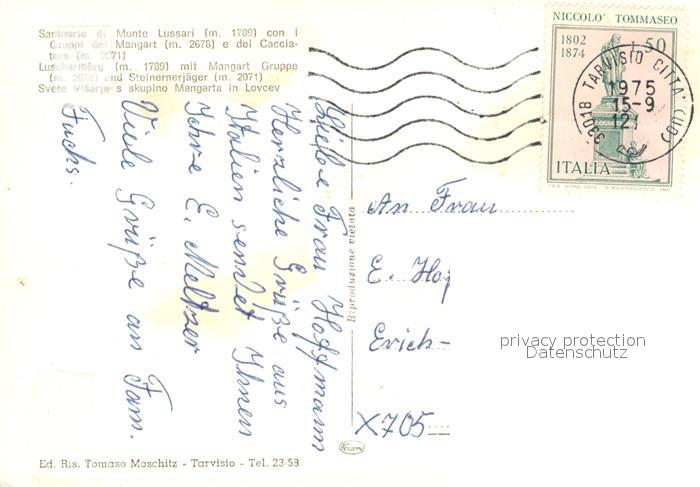 Santuario di Monte Lussari (m. 1789) con i
Gruppi del Mangart (m. 2678) e dei Caccia-
tura (m. 2071)
Luschariberg (m. 1789) mit Mangart Gruppe
(m. 2678) und Steinernerjäger (m. 2071)
Svete Višarje s skupino Mangarta in Lovcev
Liebe Frau Hoffmann
Herzliche Grüße aus
Italien sendet Ihnen
Ihre E. Meltzer
Viele Grüße an Fam.
Fuchs.
Ed. Ris. Tomaso Moschitz - Tarvisio - Tel. 23-58
Riproduzione vietata
NICCOLO' TOMMASEO
1802
1874
L50
ITALIA
33018 TARVISIO CITTA' (UD)
1975
15-9
12
An Frau
E. Hof
Erich-
X705
privacy protection
Datenschutz